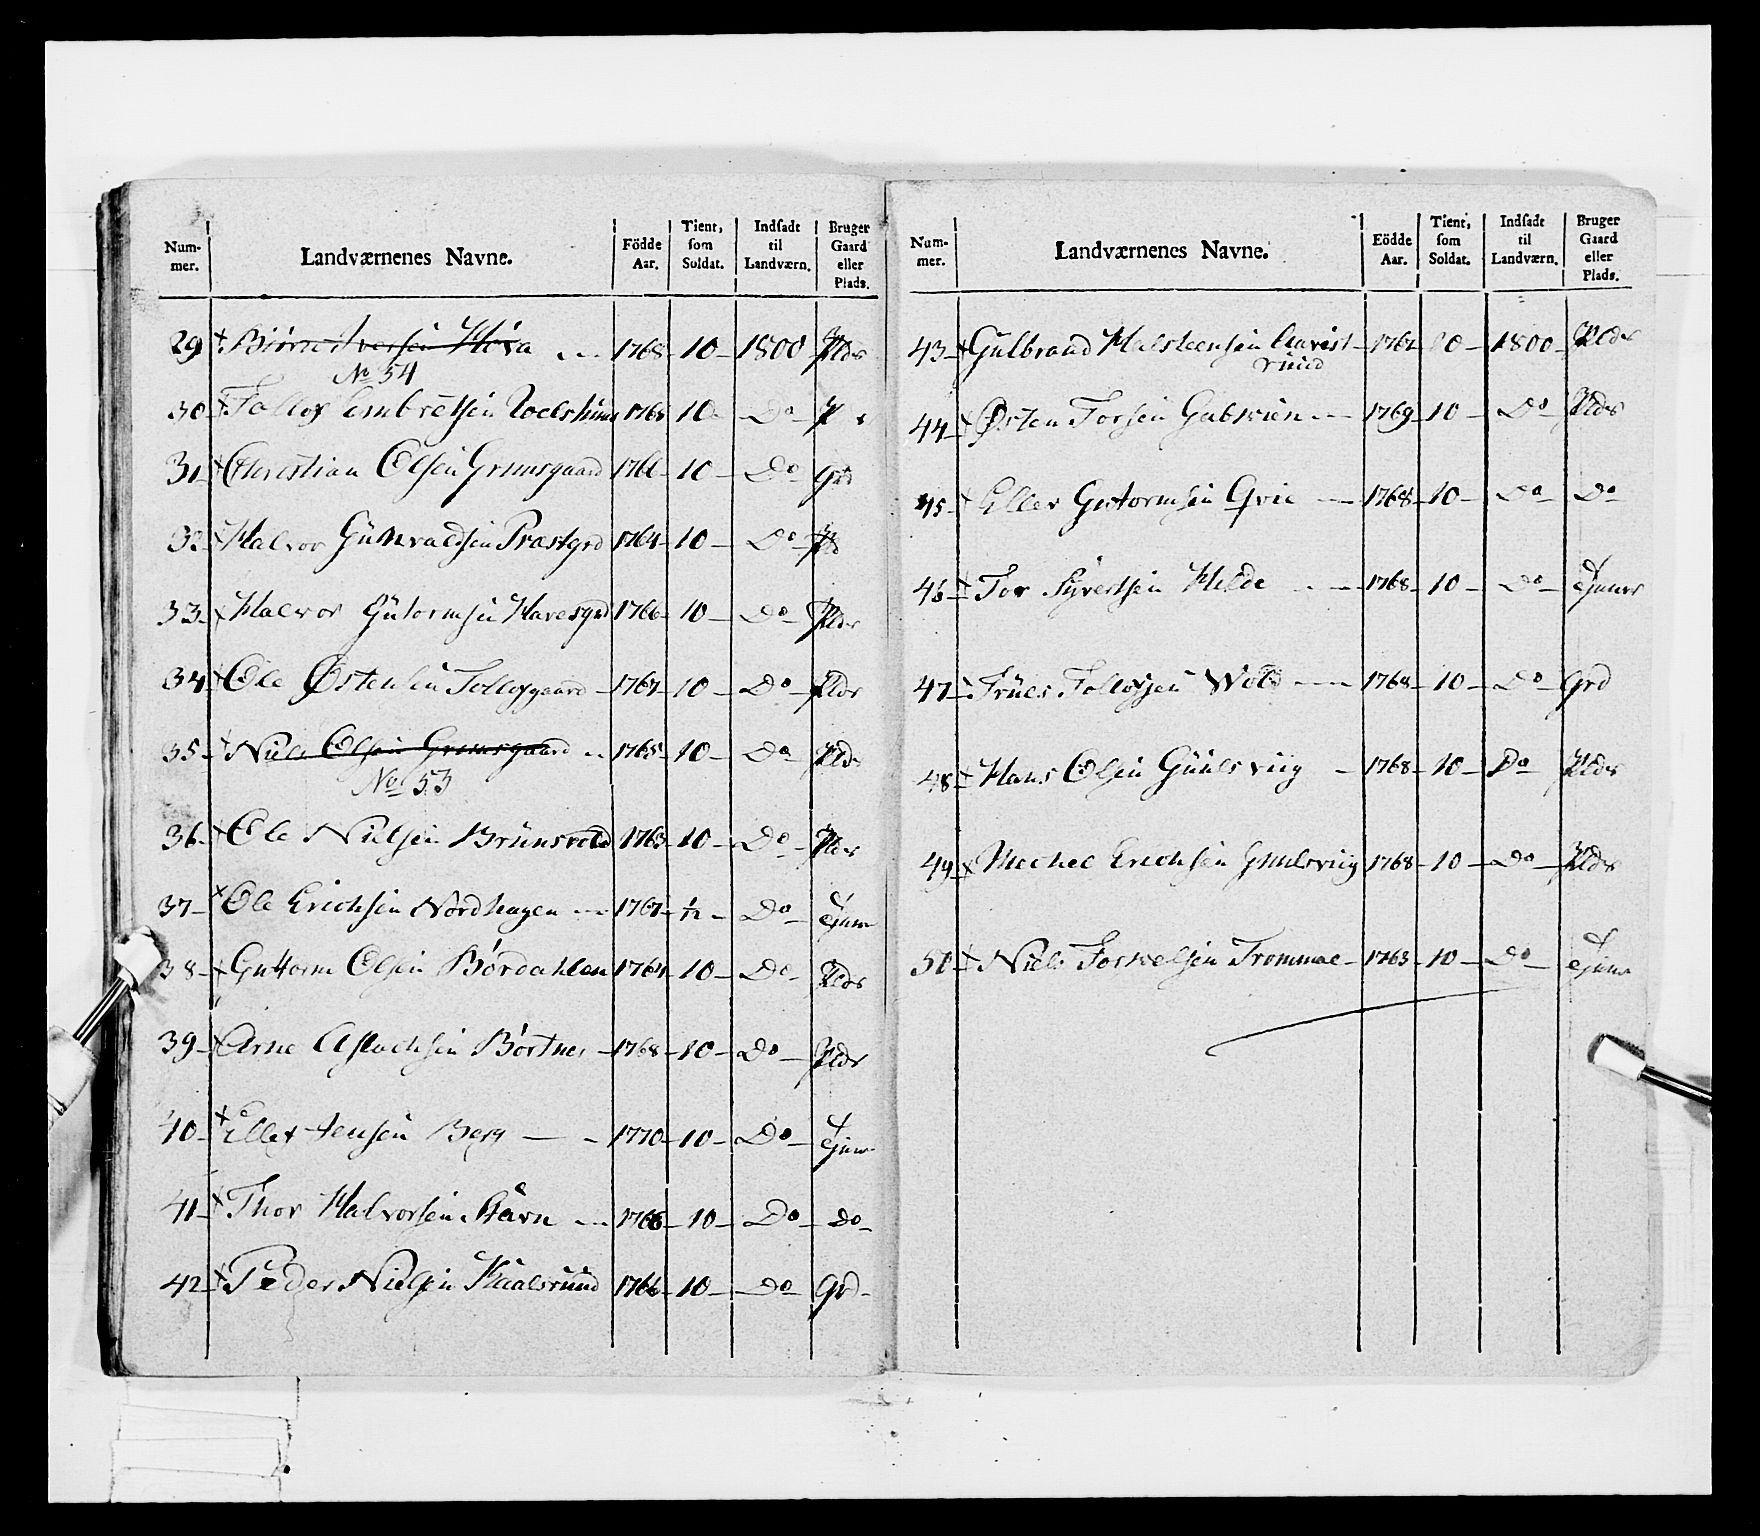 Num-mer. Landværnenes Navne. Födde Aar. Tient, som Soldat. Indsadt til Landværn. Bruger Gaard eller Plads.
29 Biörn Iversen 1768 10 1800 Plds
No 54
30 Tollef Embretsen 10 Do
31 Christian Olsen Grimsgaard 10 Do Grd
32 Halvor Gunvaldsen Præstgrd 1764 10 Do
33 Halvor Gutormsen 1766 10 Do Plds
34 Ole Østensen Tollefgaard 1767 10 Do Plds
35 Niels Olsen Grimsgaard 1765 10 Do Plds
No 53
36 Ole Nielsen Brunsvold 1763 10 Do Plds
37 Ole Erichsen Nordhagen 1767 Do
38 Guttorm Olsen Bördahlen 1764 10 Do Plds
39 Arne Aslachsen Börtnes 1768 10 Do Plds
40 Ellef Jensen Berg 1770 10 Do
41 Thor Halvorsen 1766 10 Do do
42 Peder Nielsen 1766 10 Do Grd
Num-mer. Landværnenes Navne. Födde Aar. Tient, som Soldat. Indsadt til Landværn. Bruger Gaard eller Plads.
43 Gulbrand Halsteensen 10 1800 Plds
44 Østen Torsen 1769 10 Do Plds
45 Ellev Guttormsen 1768 10 Do Do
46 Tor Syvertsen 1768 10 Do
47 Truls Tollefsen Wold 1768 10 Do Grd
48 Hans Olsen Gulsviig 1768 10 Do Plds
49 Michel Erichsen Gulsviig 1768 10 Do Plds
50 Niels Torkelsen Trommae 10 Do